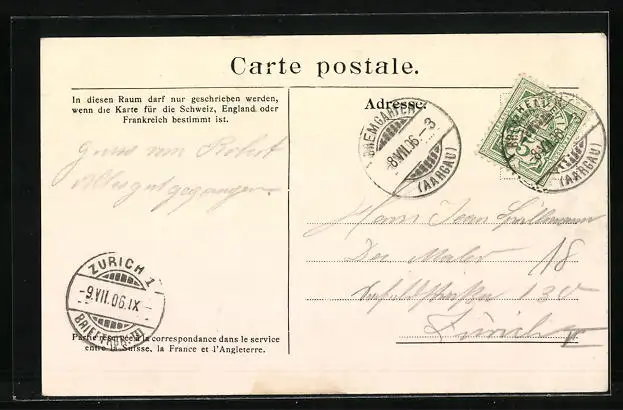 Carte postale.
In diesen Raum darf nur geschrieben werden,
wenn die Karte für die Schweiz, England oder
Frankreich bestimmt ist.
Adresse:
BREMGARTEN
-8.VII.06.-3
(AARGAU)
HELVETIA
BREMGARTEN
-8.VII.06
(AARGAU)
Gruss von Robert
Alles gut gegangen
Herrn Jean
18
Seefeldstrasse
Zürich V
ZÜRICH 1
-9.VII.06.IX-
Partie réservée à la correspondance dans le service
entre la Suisse, la France et l'Angleterre.